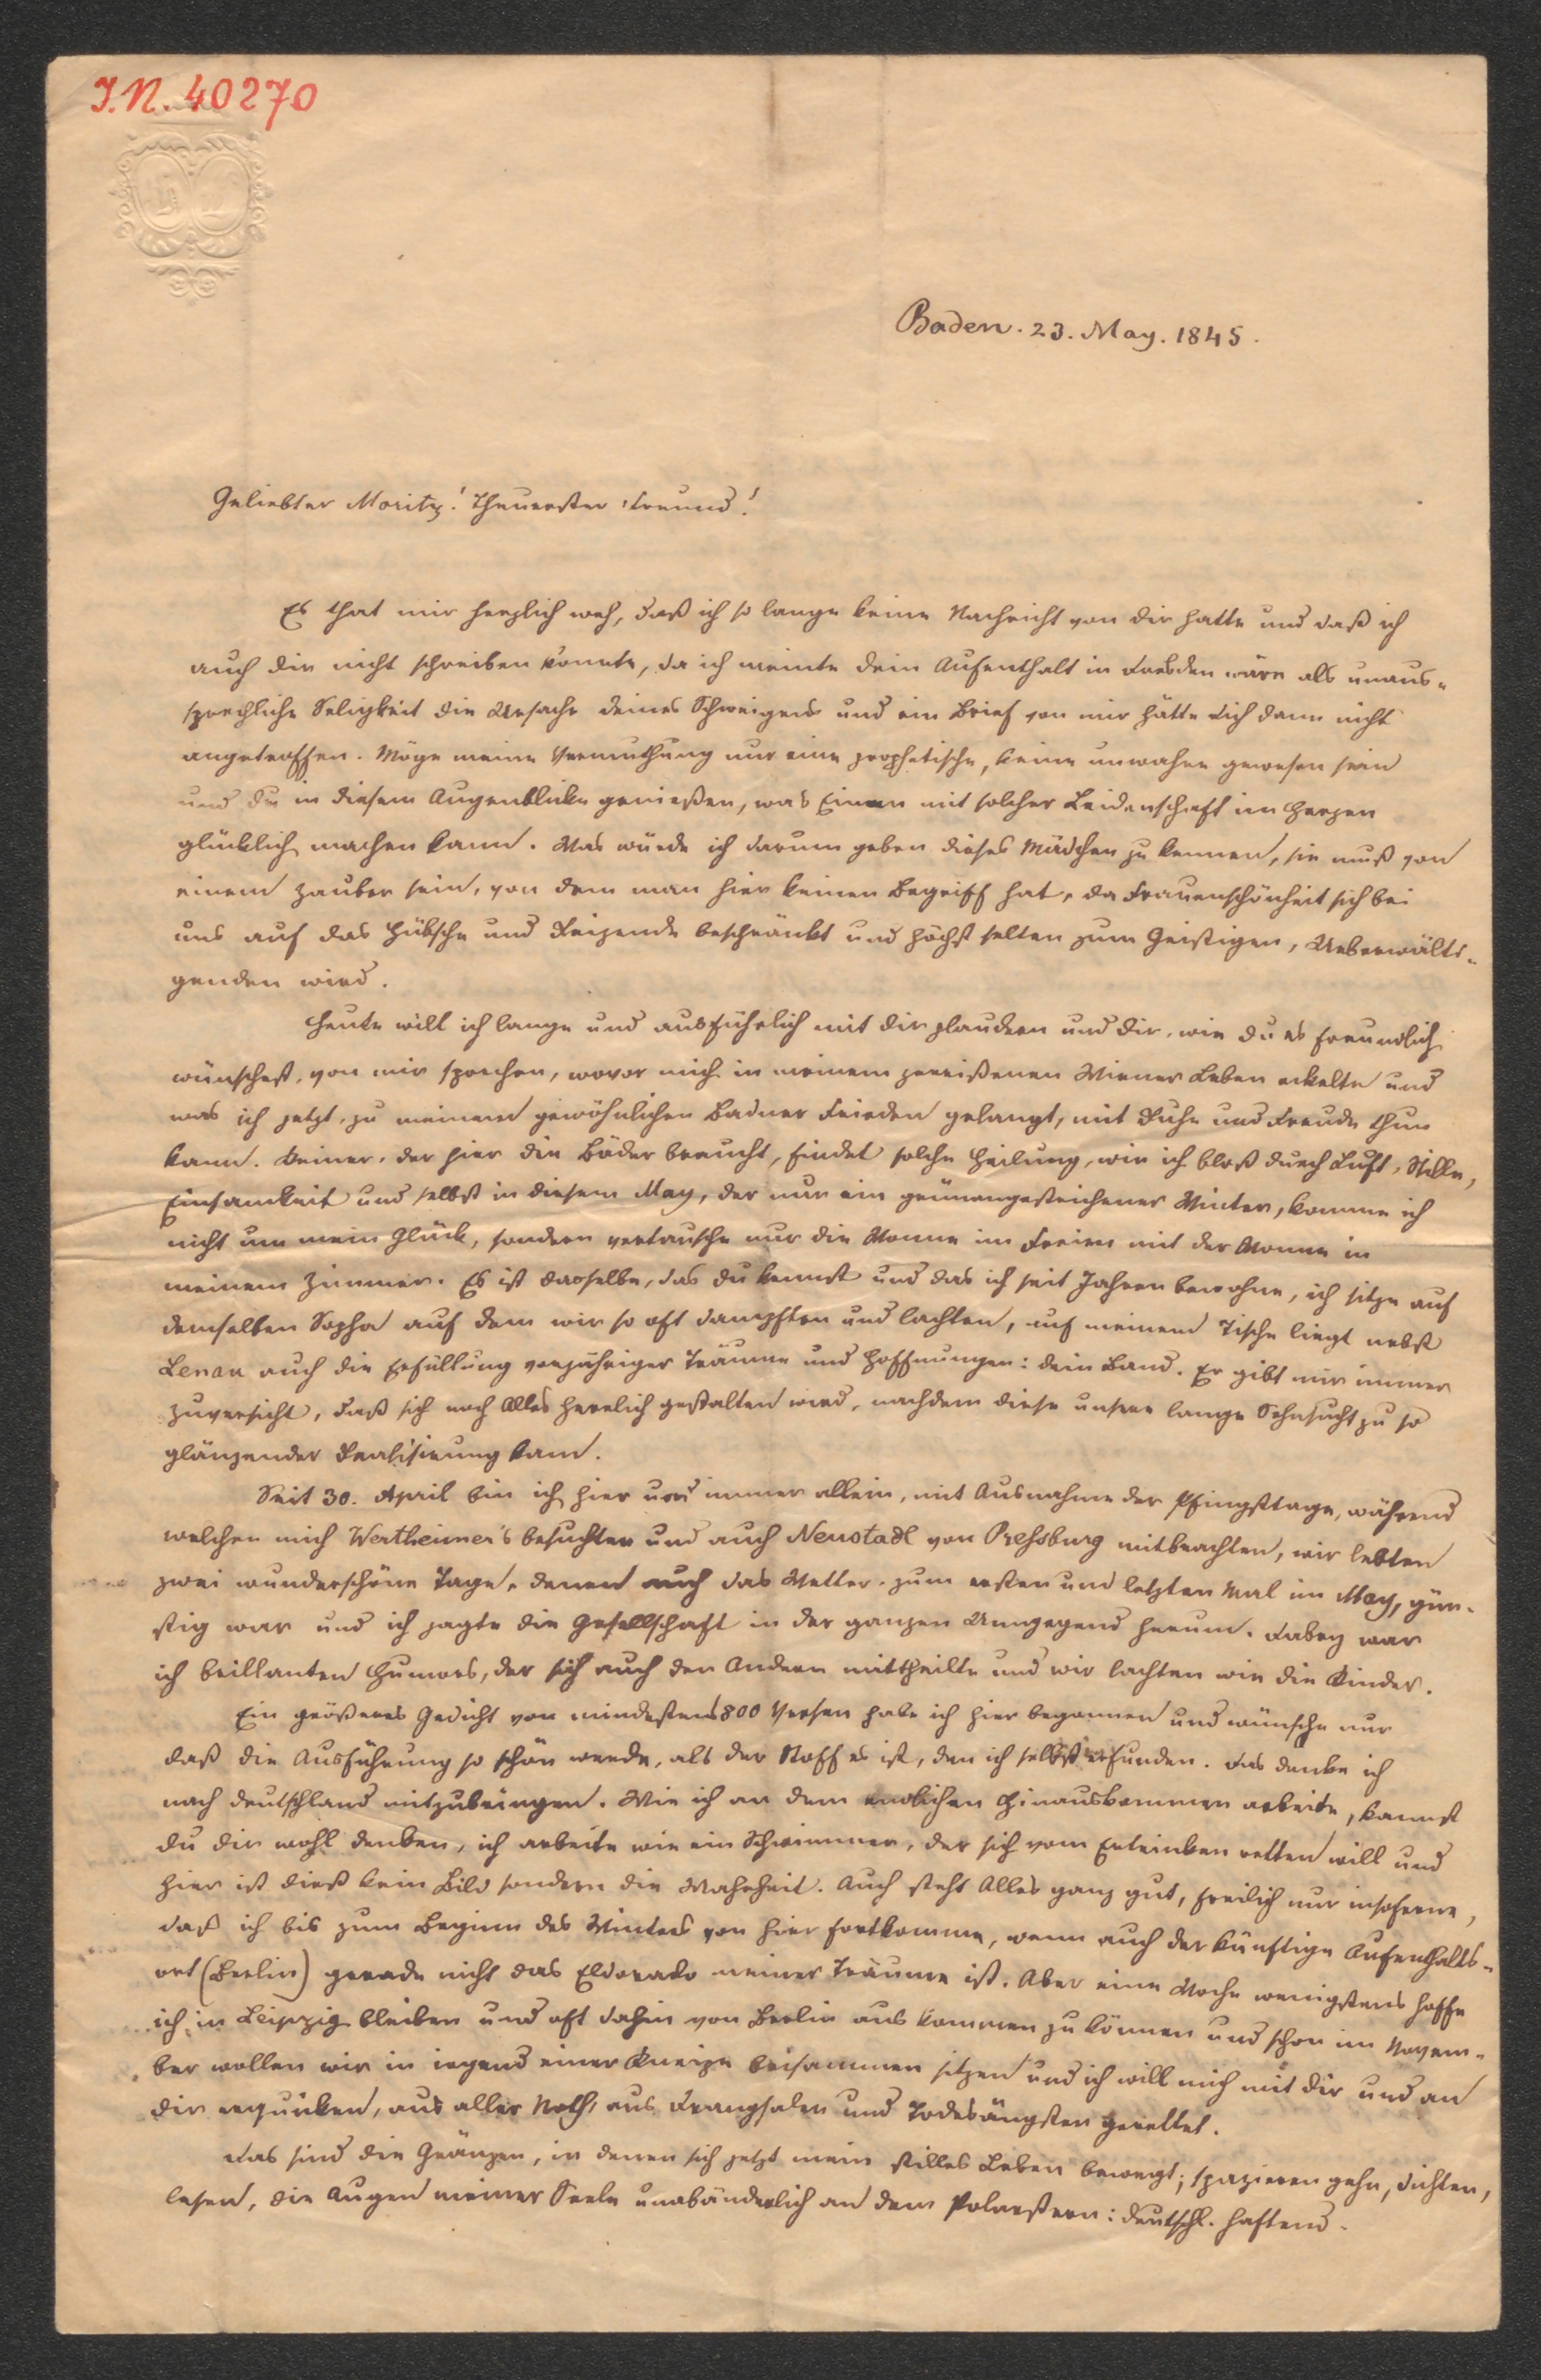 I.N. 40270
Baden. 23. May. 1845.
Geliebter Moritz! Theuerster Freund!
Es that mir herzlich weh, daß ich so lange keine Nachricht von dir hatte und daß ich
auch dir nicht schreiben konnte, da ich meinte dein Aufenthalt in Dresden wäre als unaus-
sprechliche Seligkeit die Ursache deines Schweigens und ein Brief von mir hätte dich dann nicht
angetroffen. Möge meine Vermuthung nur eine prophetische, keine unwahre gewesen sein
und du in diesem Augenblicke genießen, was Einen mit solcher Leidenschaft im Herzen
glücklich machen kann. Was würde ich darum geben dieses Mädchen zu kennen, sie muß von
einem Zauber sein, von dem man hier keinen Begriff hat, da Frauenschönheit sich bei
uns auf das Hübsche und Reizende beschränkt und höchst selten zum Geistigen, Ueberwälti-
genden wird.
Heute will ich lange und ausführlich mit dir plaudern und dir, wie du es freundlich
wünschest, von mir sprechen, wovor mich in meinem zerrißenen Wiener Leben eckelte und
was ich jetzt, zu meinem gewöhnlichen Badner Frieden gelangt, mit Ruhe und Freude thun
kann. Keiner, der hier die Bäder braucht, findet solche Heilung, wie ich bloß durch Luft, Stille,
Einsamkeit und selbst in diesem May, der nur ein grünangestrichener Winter, komme ich
nicht um mein Glück, sondern vertausche nur die Wonne im Freien mit der Wonne in
meinem Zimmer. Es ist dasselbe, das du kennst und das ich seit Jahren bewohne, ich sitze auf
demselben Sopha auf dem wir so oft dampften und lachten, auf meinem Tische liegt nebst
Lenau auch die Erfüllung vorjähriger Träume und Hoffnungen: dein Band. Er gibt mir immer
Zuversicht, daß sich noch Alles herrlich gestalten wird, nachdem diese unsere lange Sehnsucht zu so
glänzender Realisirung kam.
Seit 30. April bin ich hier und immer allein, mit Ausnahme der Pfingsttage, während
welchen mich Wertheimer's besuchten und auch Neustadt von Pressburg mitbrachten, wir lebten
zwei wunderschöne Tage, denen auch das Wetter, zum ersten und letzten Mal im May, gün-
stig war und ich jagte die Gesellschaft in der ganzen Umgegend herum. Dabey war
ich brillanten Humors, der sich auch den Andern mittheilte und wir lachten wie die Kinder.
Ein größeres Gedicht von mindestens 800 Versen habe ich hier begonnen und wünsche nur
daß die Ausführung so schön werde, als der Stoff es ist, den ich selbst erfunden. Das denke ich
nach Deutschland mitzubringen. Wie ich an dem endlichen Hinauskommen arbeite, kannst
du dir wohl denken, ich arbeite wie ein Schwimmer, der sich vom Ertrinken retten will und
hier ist dieß kein Bild sondern die Wahrheit. Auch steht Alles ganz gut, freilich nur insoferne,
daß ich bis zum Beginn des Winters von hier fortkomme, wenn auch der künftige Aufenthalts-
ort (Berlin) gerade nicht das Eldorado meiner Träume ist. Aber eine Woche wenigstens hoffe
ich in Leipzig bleiben und oft dahin von Berlin aus kommen zu können und schon im Novem-
ber wollen wir in irgend einer Kneipe beisammen sitzen und ich will mich mit dir und an
dir erquicken, aus aller Noth, aus Drangsalen und Todesängsten gerettet.
Das sind die Gränzen, in denen sich jetzt mein stilles Leben bewegt; spazieren gehn, dichten,
lesen, die Augen meiner Seele unabänderlich an dem Polarstern: Deutschl. haftend.